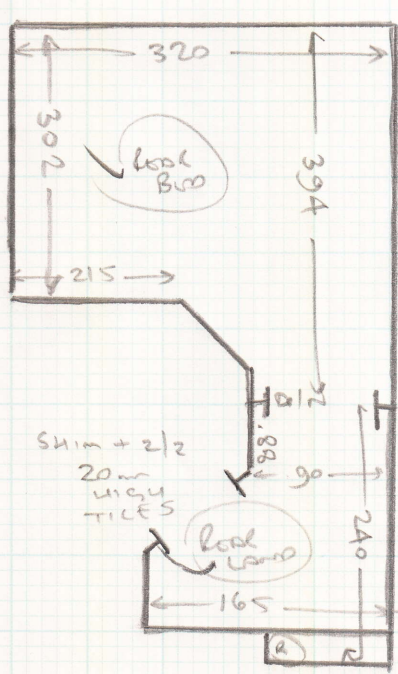 320
302
394
REAR
BED
215
D/2
.88
SHIM + 2/2
20mm
HIGH
TILES
90
240
REAR
LAND
165
R